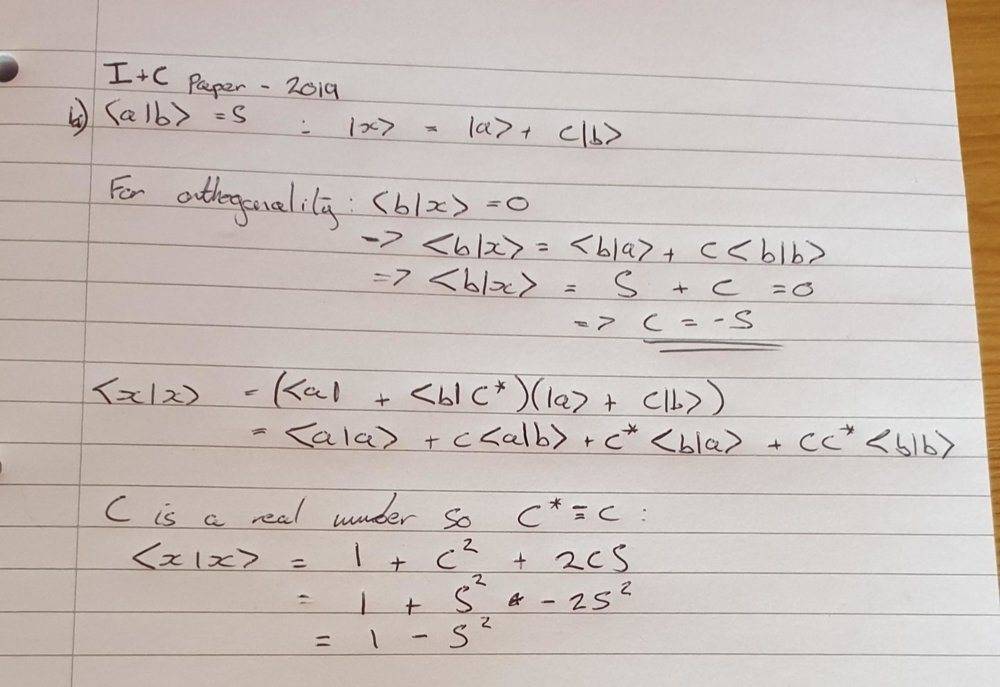 I+C Paper - 2019
b) <a|b> = S : |x> = |a> + c|b>
For orthogonality: <b|x> = 0
=> <b|x> = <b|a> + C<b|b>
=> <b|x> = S + C = 0
=> C = -S
<x|x> = (<a| + <b|C*)(|a> + c|b>)
= <a|a> + c<a|b> + c*<b|a> + CC*<b|b>
C is a real number so C* ≡ C :
<x|x> = 1 + C² + 2CS
= 1 + S² - 2S²
= 1 - S²